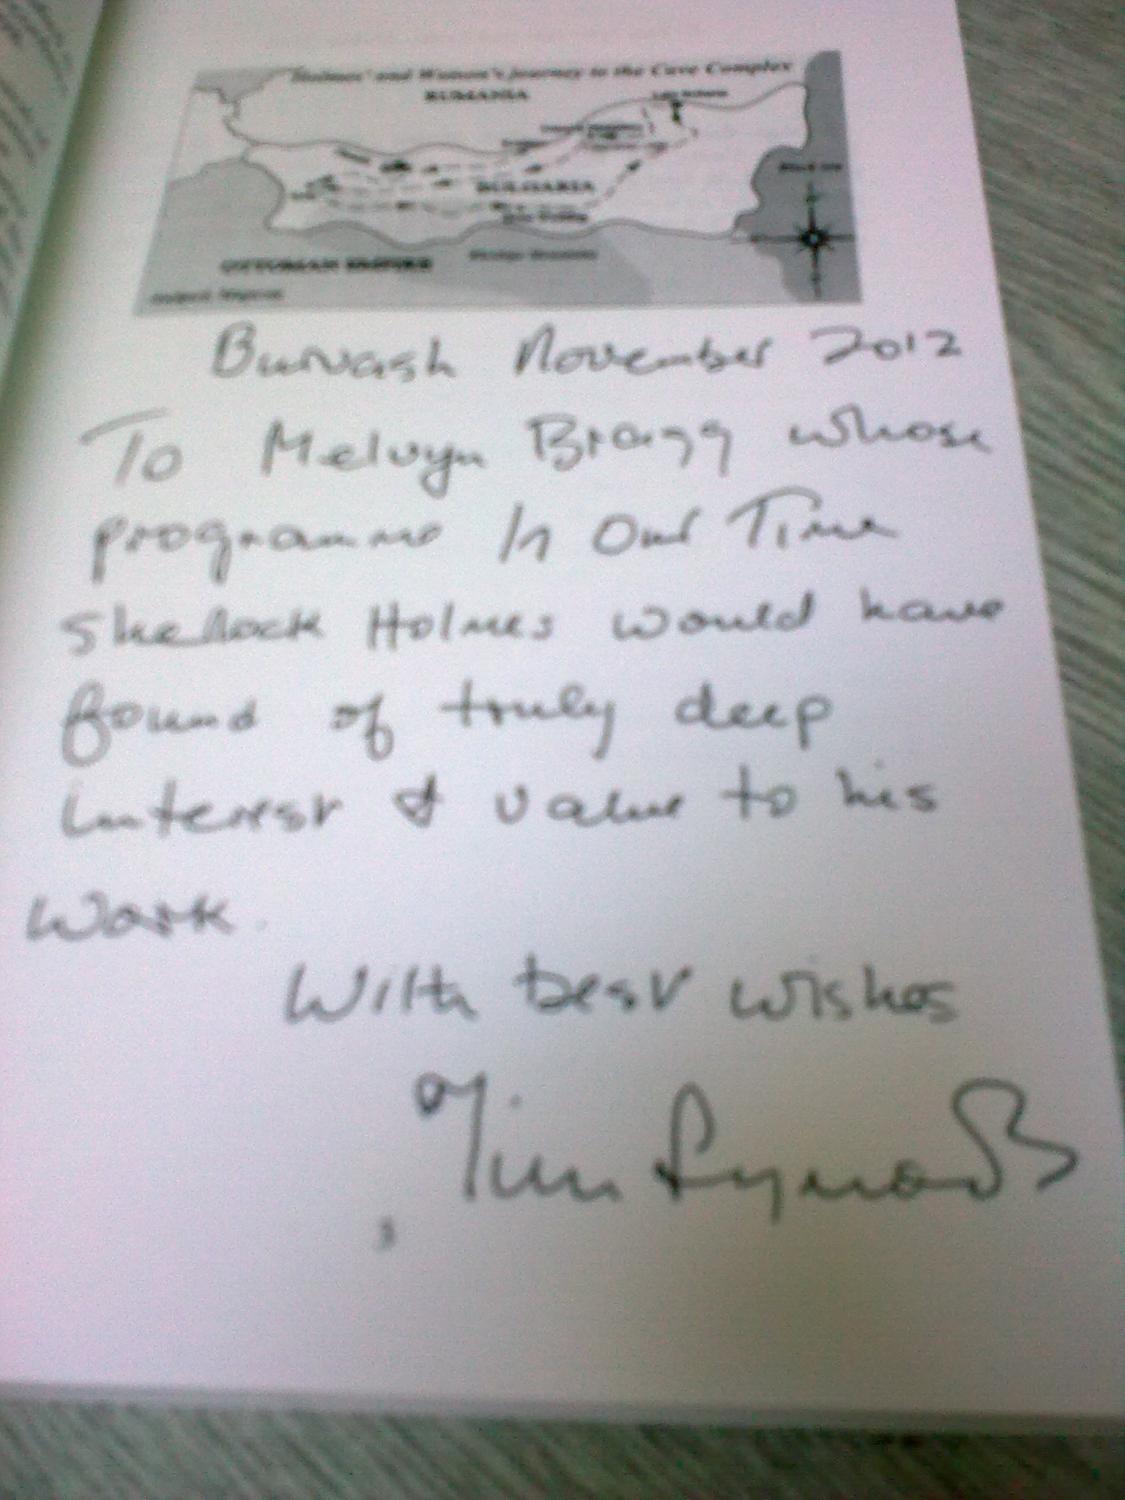 Holmes' and Watson's journey to the Cave Complex
RUMANIA
BULGARIA
Black Sea
OTTOMAN EMPIRE
Burwash November 2012
To Melvyn Bragg whose
programme In Our Time
Sherlock Holmes would have
found of truly deep
interest & value to his
work.
With best wishes
Tim Symonds
3